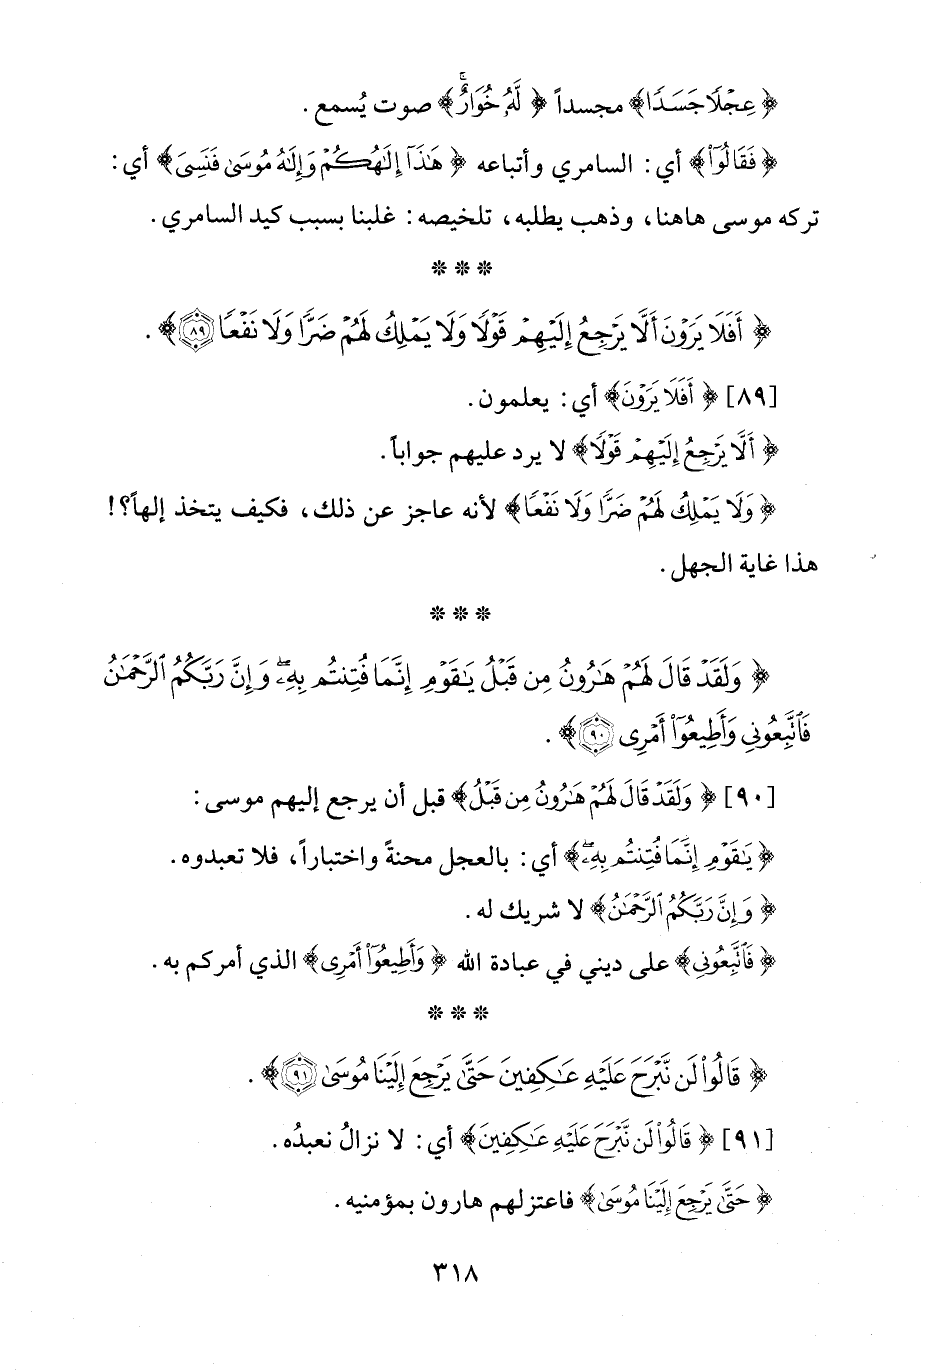 ﴿عِجْلًا جَسَدًا﴾ مجسداً ﴿لَّهُۥ خُوَارٌ﴾ صوت يُسمع.
﴿فَقَالُوٓا۟﴾ أي: السامري وأتباعه ﴿هَٰذَآ إِلَٰهُكُمْ وَإِلَٰهُ مُوسَىٰ فَنَسِىَ﴾ أي:
تركه موسى هاهنا، وذهب يطلبه، تلخيصه: غلبنا بسبب كيد السامري.
* * *
﴿أَفَلَا يَرَوْنَ أَلَّا يَرْجِعُ إِلَيْهِمْ قَوْلًا وَلَا يَمْلِكُ لَهُمْ ضَرًّا وَلَا نَفْعًا ٨٩﴾.
[٨٩] ﴿أَفَلَا يَرَوْنَ﴾ أي: يعلمون.
﴿أَلَّا يَرْجِعُ إِلَيْهِمْ قَوْلًا﴾ لا يرد عليهم جواباً.
﴿وَلَا يَمْلِكُ لَهُمْ ضَرًّا وَلَا نَفْعًا﴾ لأنه عاجز عن ذلك، فكيف يتخذ إلهاً؟!
هذا غاية الجهل.
* * *
﴿وَلَقَدْ قَالَ لَهُمْ هَٰرُونُ مِن قَبْلُ يَٰقَوْمِ إِنَّمَا فُتِنتُم بِهِۦ ۖ وَإِنَّ رَبَّكُمُ ٱلرَّحْمَٰنُ
فَٱتَّبِعُونِى وَأَطِيعُوٓا۟ أَمْرِى ٩٠﴾.
[٩٠] ﴿وَلَقَدْ قَالَ لَهُمْ هَٰرُونُ مِن قَبْلُ﴾ قبل أن يرجع إليهم موسى:
﴿يَٰقَوْمِ إِنَّمَا فُتِنتُم بِهِۦ ۖ﴾ أي: بالعجل محنةً واختباراً، فلا تعبدوه.
﴿وَإِنَّ رَبَّكُمُ ٱلرَّحْمَٰنُ﴾ لا شريك له.
﴿فَٱتَّبِعُونِى﴾ على ديني في عبادة الله ﴿وَأَطِيعُوٓا۟ أَمْرِى﴾ الذي أمركم به.
* * *
﴿قَالُوا۟ لَن نَّبْرَحَ عَلَيْهِ عَٰكِفِينَ حَتَّىٰ يَرْجِعَ إِلَيْنَا مُوسَىٰ ٩١﴾.
[٩١] ﴿قَالُوا۟ لَن نَّبْرَحَ عَلَيْهِ عَٰكِفِينَ﴾ أي: لا نزالُ نعبدُه.
﴿حَتَّىٰ يَرْجِعَ إِلَيْنَا مُوسَىٰ﴾ فاعتزلهم هارون بمؤمنيه.
٣١٨